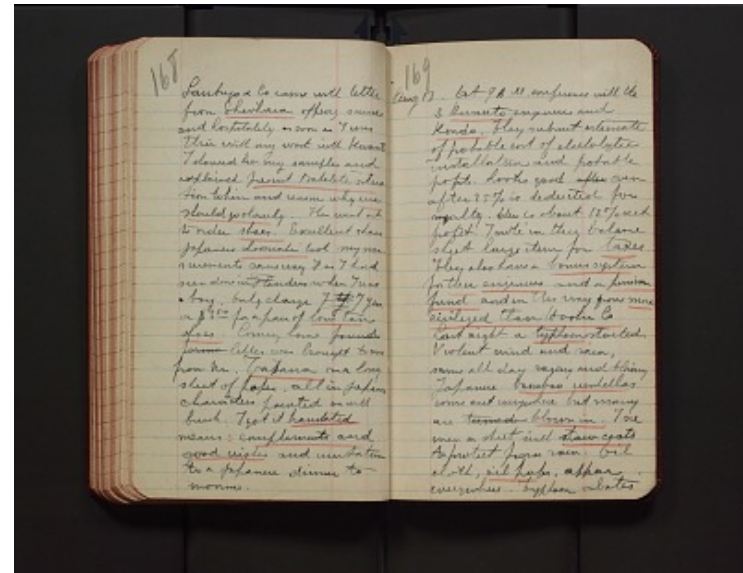 168
came with letter
from offering services
and hospitality as soon as I was
thru with my work with
I showed him my samples and
explained present Bakelite
and reason why we
should go slowly. He went out
to order shoes. Excellent shoes
Japanese took my
same way as I had
seen done in Flanders when I was
a boy. Only charge 7 yen
or for a pair of low tan
shoes. Coming home found
letter was brought to me
from Mr. Takana on a long
sheet of paper, all in Japanese
characters painted on with
brush. I got it translated
means: compliments and
good wishes and invitation
to a Japanese dinner to-
morrow.
169
Aug 13. At 9 A.M. conference with the
3 engineers and
Kondo. They submit estimate
of probable cost of electrolytic
installation and probable
profit. Looks good even
after 25% is deducted for
royalty. Idea is about 15% net
profit. I note in they balance
sheet large item for taxes.
They also have a bonus system
for their engineers and a pension
fund and in this way are more
civilized than Hooker Co
Last night a typhoon started.
Violent wind and rain,
same all day raging and blowing
Japanese bamboo umbrellas
come out everywhere but many
are turned blown in. I see
men in street with straw coats
to protect from rain. Oil
cloth, oil paper, appear
everywhere. Typhoon abates